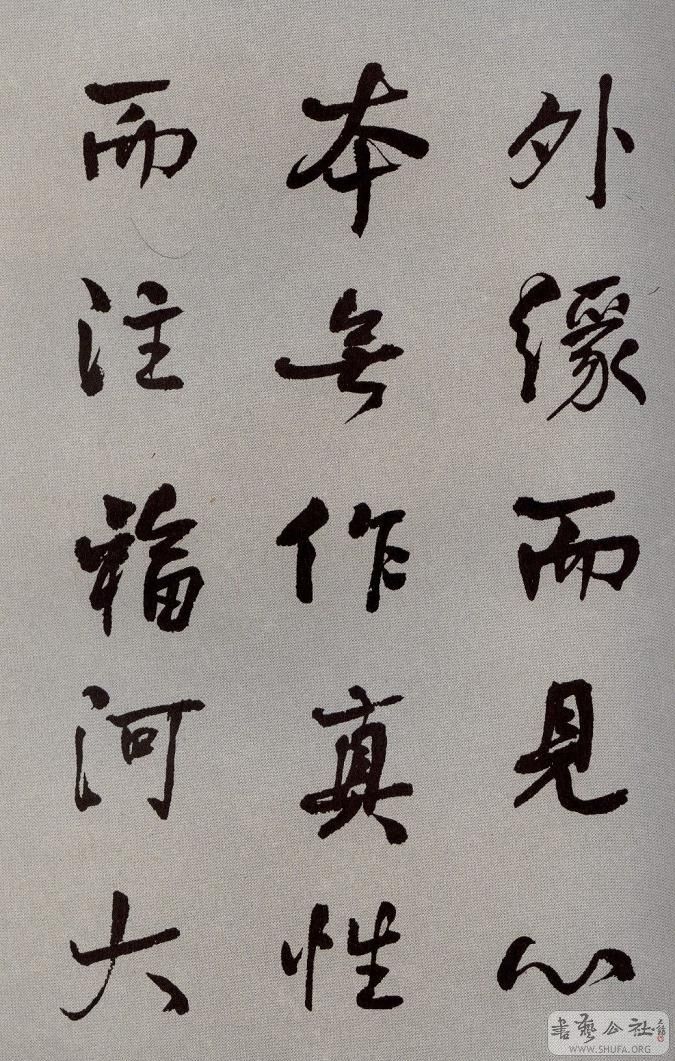 外缘而見心
本無作真性
而注福河大
書藝公社
WWW.SHUFA.ORG